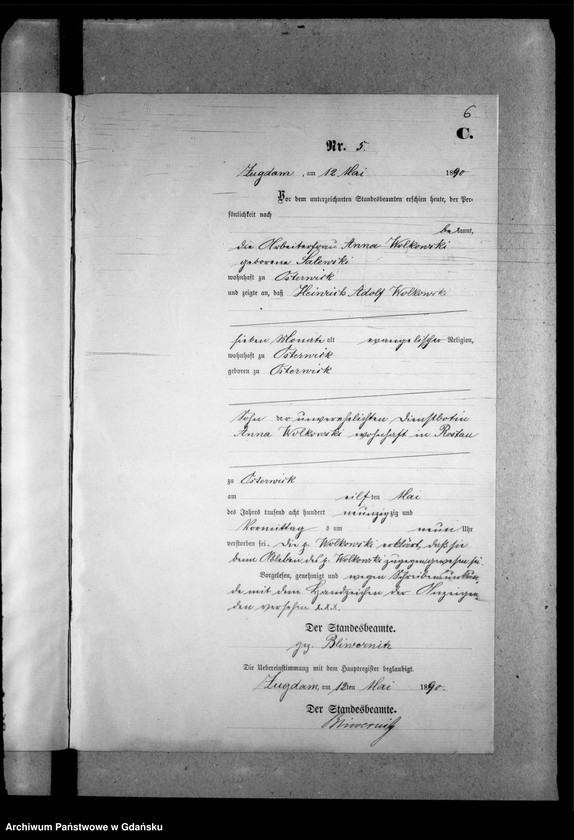 6
C.
Nr. 5.
Zugdam, am 12 Mai 1890
Vor dem unterzeichneten Standesbeamten erschien heute, der Per-
sönlichkeit nach
bekannt,
die Arbeiterfrau Anna Wolkowski
geborene Salewski
wohnhaft zu Osterwick
und zeigte an, daß Heinrich Adolf Wolkowski
sieben Monate alt evangelischer Religion,
wohnhaft zu Osterwick
geboren zu Osterwick
Sohn der unverehelichten Dienstbotin
Anna Wolkowski wohnhaft in Rostau
zu Osterwick
am eilften Mai
des Jahres tausend acht hundert neunzig und
Vormittags um neun Uhr
verstorben sei. Die p. Wolkowski erklärt, daß sie
beim Ableben des p. Wolkowski zugegen gewesen sei
Vorgelesen, genehmigt und wegen Schreibensunkun-
de mit dem Handzeichen der Anzeigen-
den versehen
Der Standesbeamte.
gez. Bliwernitz
Die Uebereinstimmung mit dem Hauptregister beglaubigt.
Zugdam, am 12ten Mai 1890.
Der Standesbeamte.
Bliwernitz
Archiwum Państwowe w Gdańsku